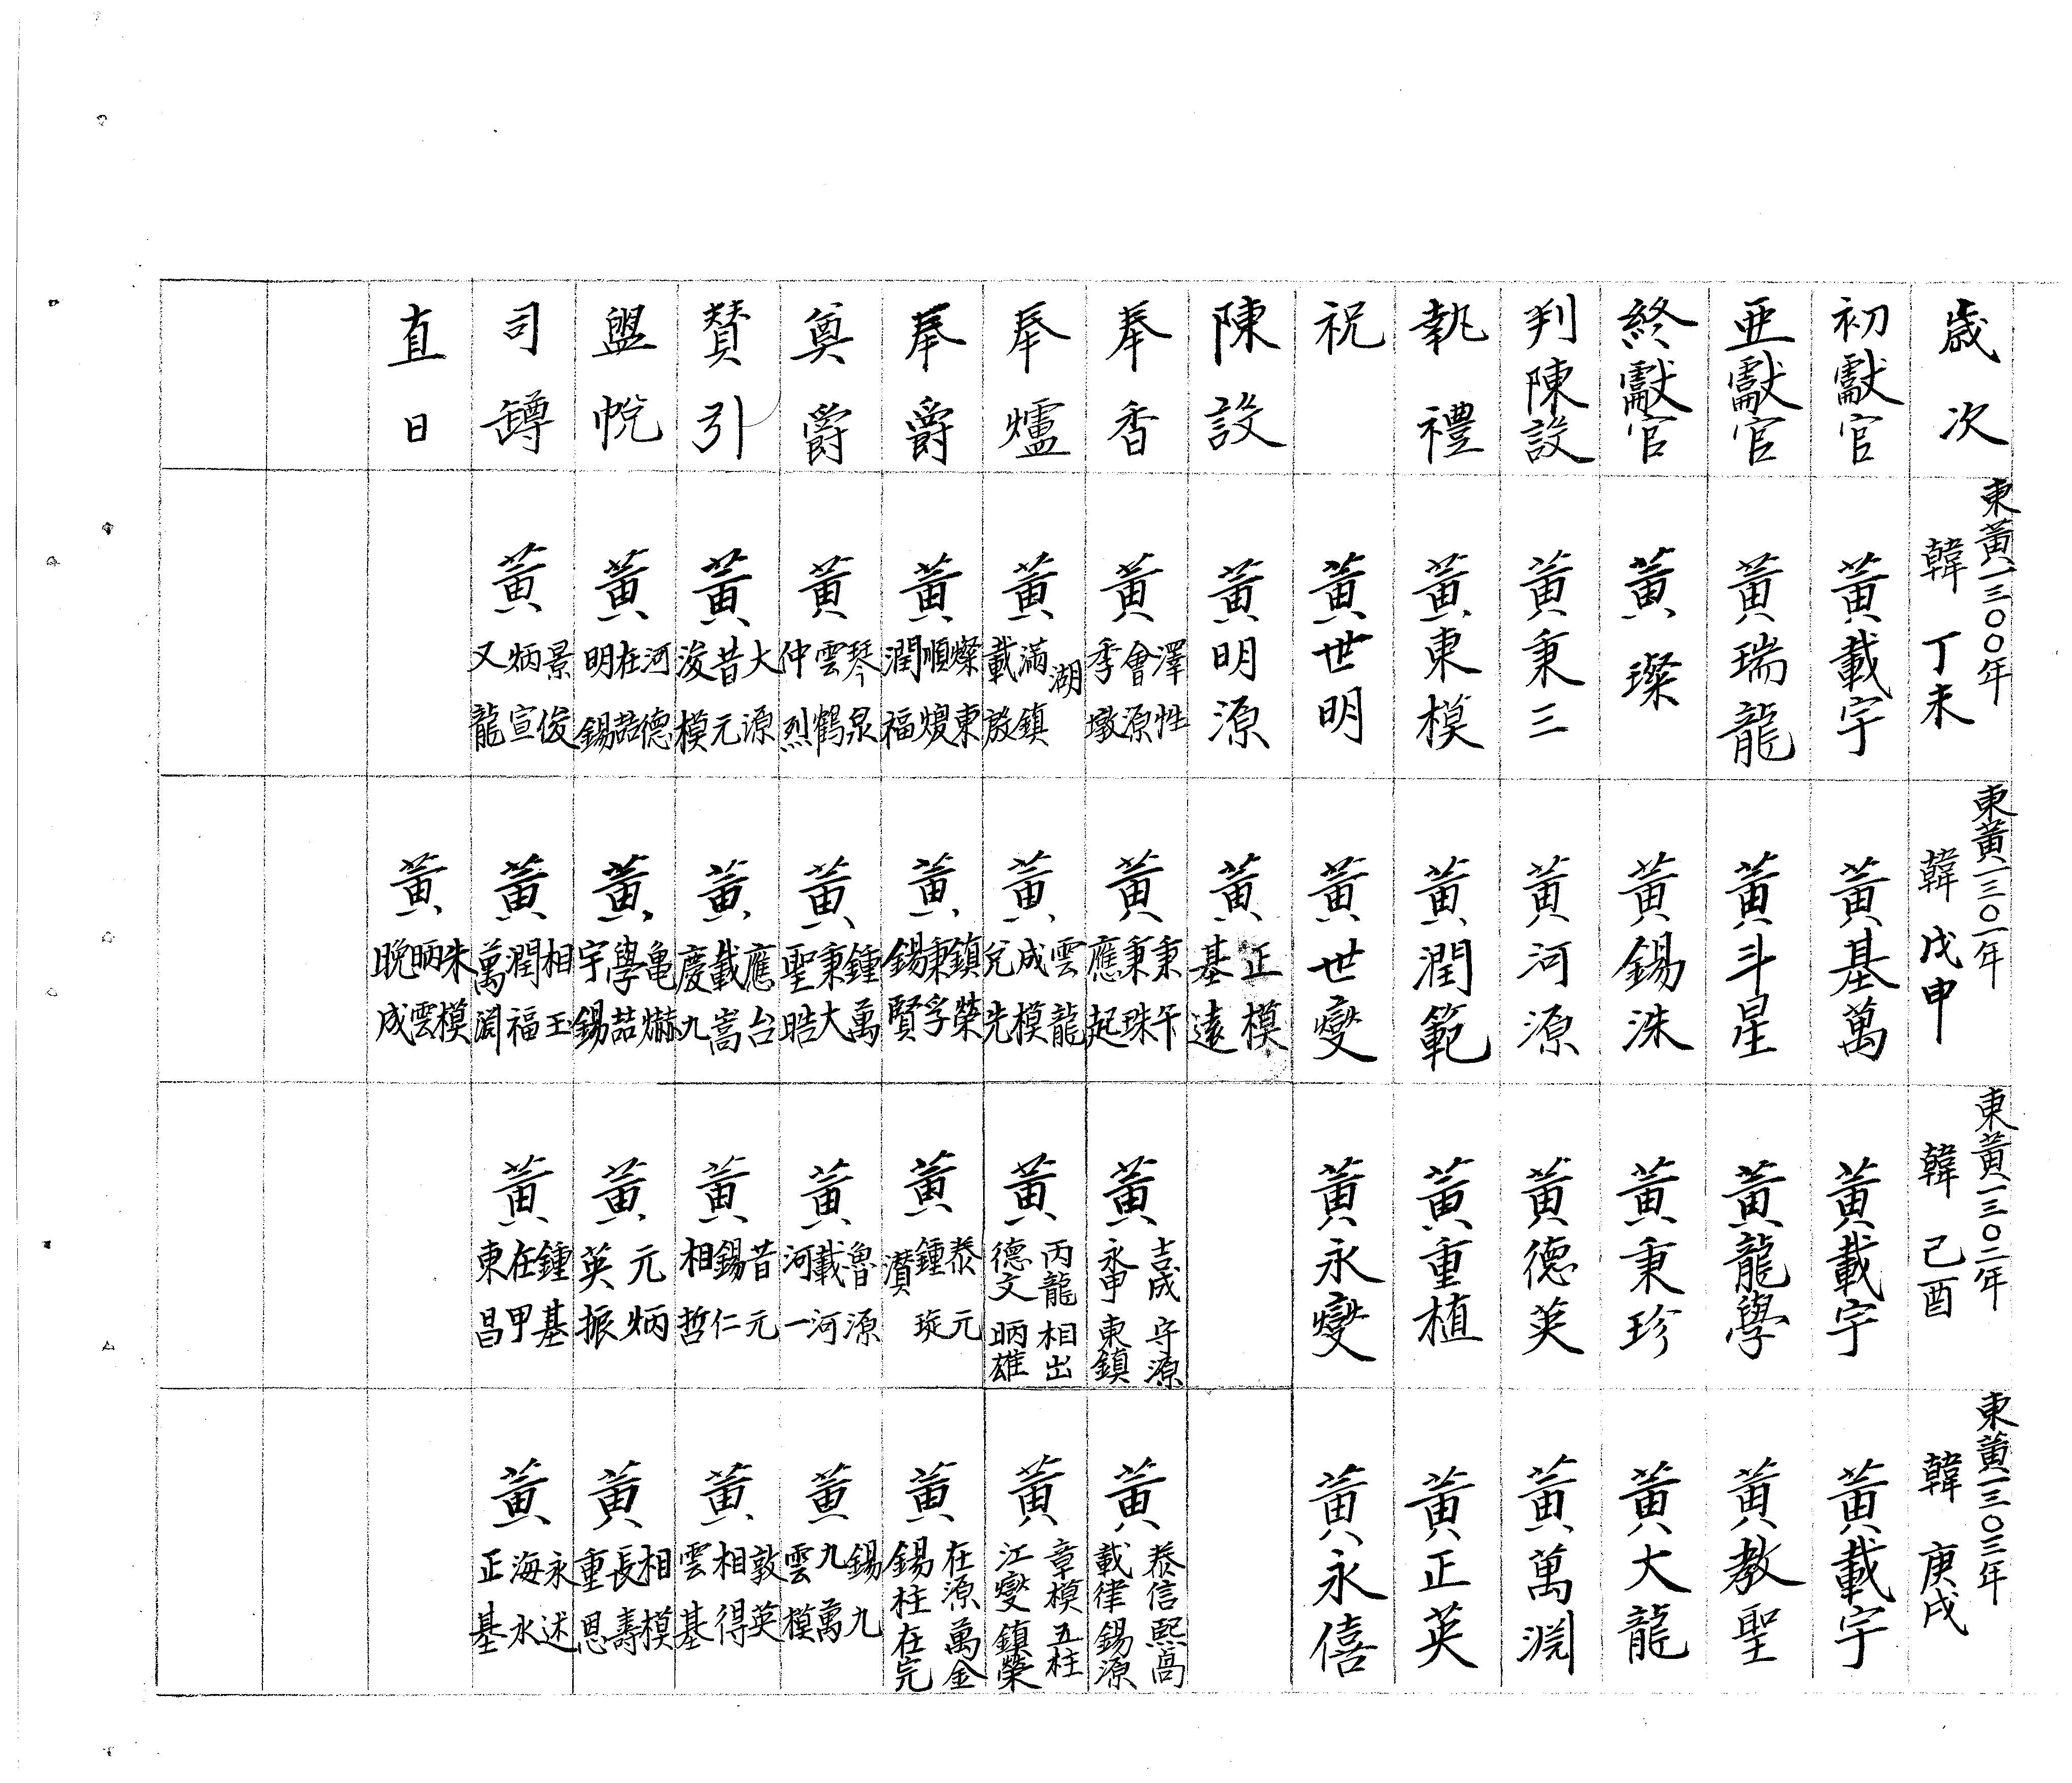 歲次
初獻官
亞獻官
終獻官
判陳設
執禮
祝
陳設
奉香
奉爐
奉爵
奠爵
贊引
盥帨
司罇
直日
東黃一三〇〇年
韓 丁未
黃載宇
黃瑞龍
黃璨
黃秉三
黃東模
黃世明
黃明源
黃
澤性
會源
季墩
黃
湖
滿鎮
載放
黃
燦東
順煥
潤福
黃
琴泉
雲鶴
仲烈
黃
大源
昔元
浚模
黃
河德
在喆
明錫
黃
景俊
炳宣
又龍
東黃一三〇一年
韓 戊申
黃基萬
黃斗星
黃錫洙
黃河源
黃潤範
黃世燮
黃
正模
基遠
黃
秉午
秉珠
應起
黃
雲龍
成模
兌先
黃
鎮榮
秉孚
錫賢
黃
鍾萬
秉大
聖晧
黃
應台
載嵩
慶九
黃
龜爀
學喆
宇錫
黃
相玉
潤福
萬淵
黃
洙模
昞雲
晩成
東黃一三〇二年
韓 己酉
黃載宇
黃龍學
黃秉珍
黃德英
黃重植
黃永燮
黃
吉成 守源
永甲 東鎮
黃
丙龍 相出
德文 昞雄
黃
泰元
鍾琁
濱
黃
魯源
載河
河一
黃
昔元
錫仁
相哲
黃
元炳
英振
黃
鍾基
在甲
東昌
東黃一三〇三年
韓 庚戌
黃載宇
黃教聖
黃大龍
黃萬淵
黃正英
黃永僖
黃
泰信 熙高
載律 錫源
黃
章模 五柱
江燮 鎮榮
黃
在源 萬金
錫柱 在完
黃
錫九
九萬
雲模
黃
敦英
相得
雲基
黃
相模
長壽
重恩
黃
永述
海水
正基